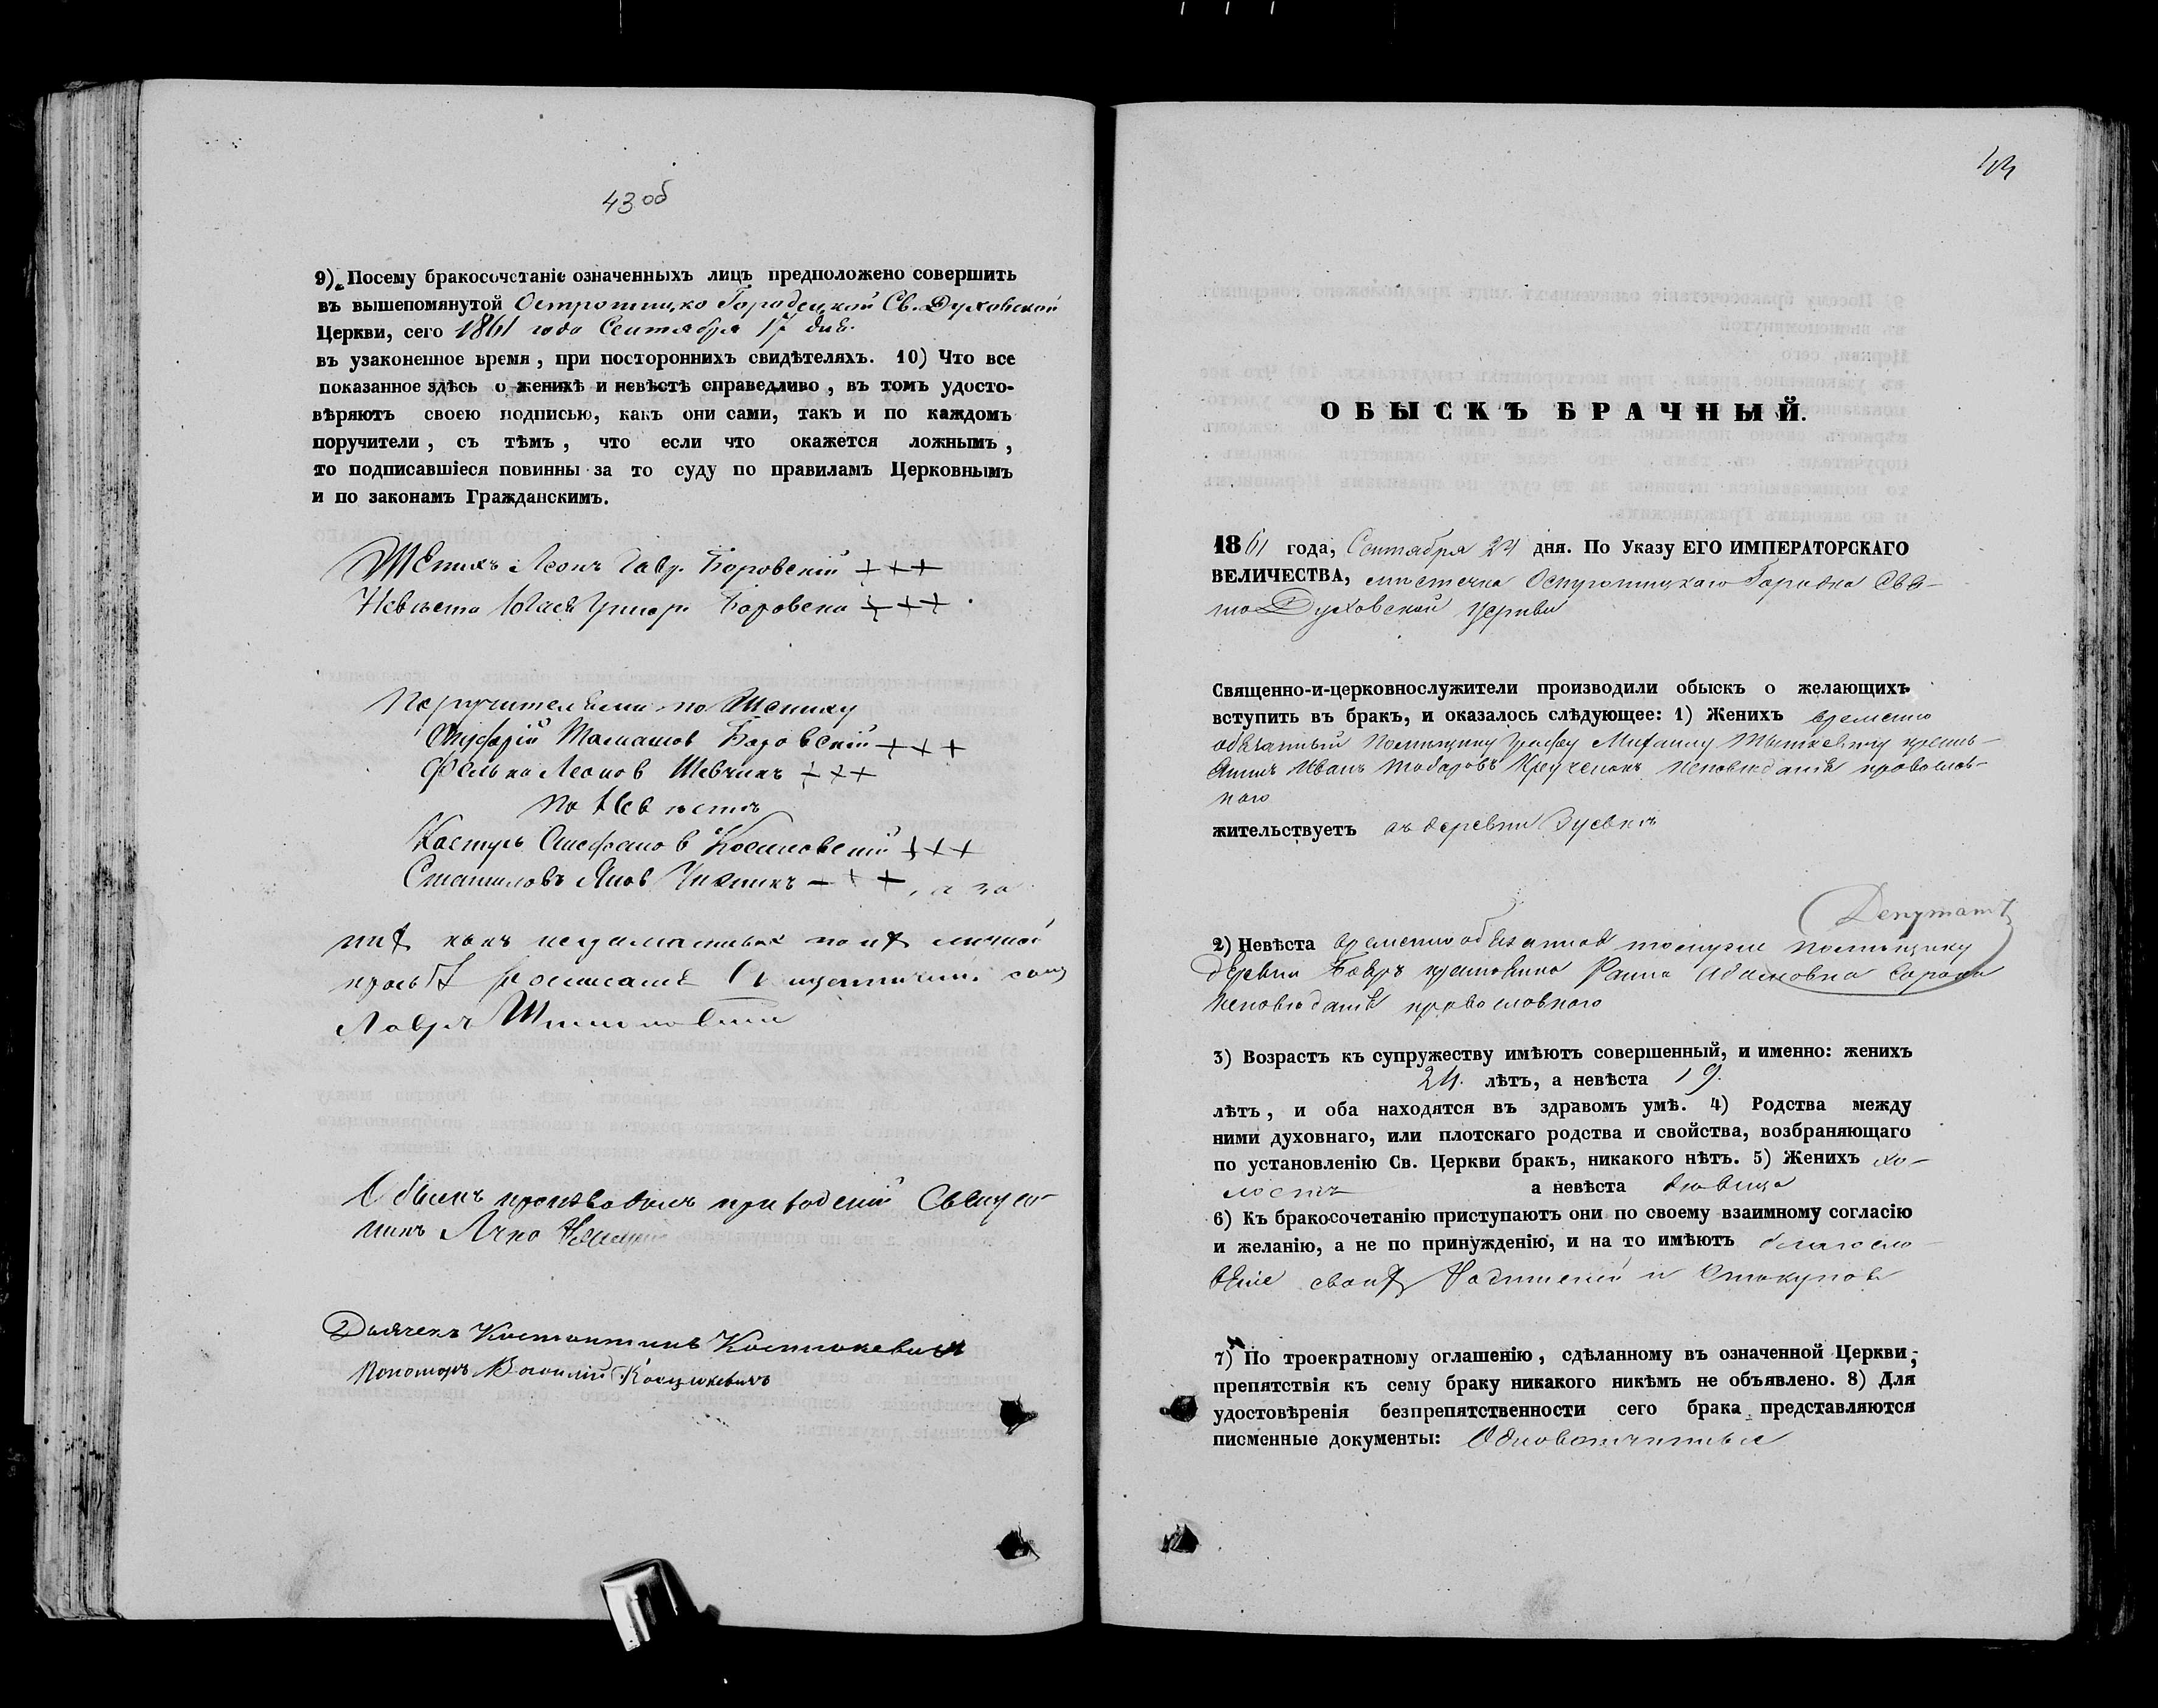 43 об
9) Посему бракосочетаніе означенныхъ лицъ предположено совершить
въ вышепомянутой Острошицко Городецкой Св. Духовской
Церкви, сего 1861 года Сентября 17 дня
въ узаконенное время, при постороннихъ свидѣтеляхъ. 10) Что все
показанное здѣсь о женихѣ и невѣстѣ справедливо, въ томъ удосто-
вѣряютъ своею подписью, какъ они сами, такъ и по каждомъ
поручители, съ тѣмъ, что если что окажется ложнымъ,
то подписавшіеся повинны за то суду по правиламъ Церковнымъ
и по законамъ Гражданскимъ.
Женихъ Леонъ Гавр. Боровскій +++
Невѣста Григор. Боровска +++
Поручители по Жениху
Онуфрій Тамашов Боровскій +++
Фелько Леонов Шевчикъ +++
По Невѣстѣ
Кастусь Боровскій +++
Янов +++, а за
них какъ неграмотных по их личной
прозьбѣ росписалс
Обыскъ производилъ приходскій Священ-
никъ
Дьячекъ Константинъ
Пономарь
44
ОБЫСКЪ БРАЧНЫЙ.
1861 года, Сентября 24 дня. По Указу ЕГО ИМПЕРАТОРСКАГО
ВЕЛИЧЕСТВА, мѣстечка Острошицкаго Городка Свя-
то Духовской Церкви
Священно-и-церковнослужители производили обыскъ о желающихъ
вступить въ бракъ, и оказалось слѣдующее: 1) Женихъ временно
обязанный Помѣщику Графу Михаилу Тышкевичу кресть-
янинъ Иванъ Тодоровъ Крученокъ исповѣданія православ-
наго
жительствуетъ въ деревни Зуевкѣ
2) Невѣста временнообязанная томуже помѣщику
деревни крестьянка Адамовна Сорока
исповѣданія православного
3) Возрастъ къ супружеству имѣютъ совершенный, и именно: женихъ
24. лѣтъ, а невѣста 19.
лѣтъ, и оба находятся въ здравомъ умѣ. 4) Родства между
ними духовнаго, или плотскаго родства и свойства, возбраняющаго
по установленію Св. Церкви бракъ, никакого нѣтъ. 5) Женихъ хо-
лостъ а невѣста дѣвица
6) Къ бракосочетанію приступаютъ они по своему взаимному согласію
и желанію, а не по принужденію, и на то имѣютъ благосло
веніе своих Родителей и Опекунов
7) По троекратному оглашенію, сдѣланному въ означенной Церкви,
препятствія къ сему браку никакого никѣмъ не объявлено. 8) Для
удостовѣренія безпрепятственности сего брака представляются
писменные документы: Одновотчинные